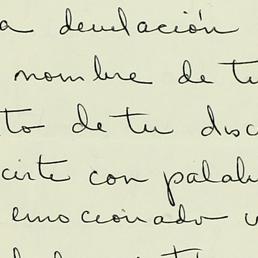 a develación
nombre de tu
to de tu disc
cirte con palab
emocionado u